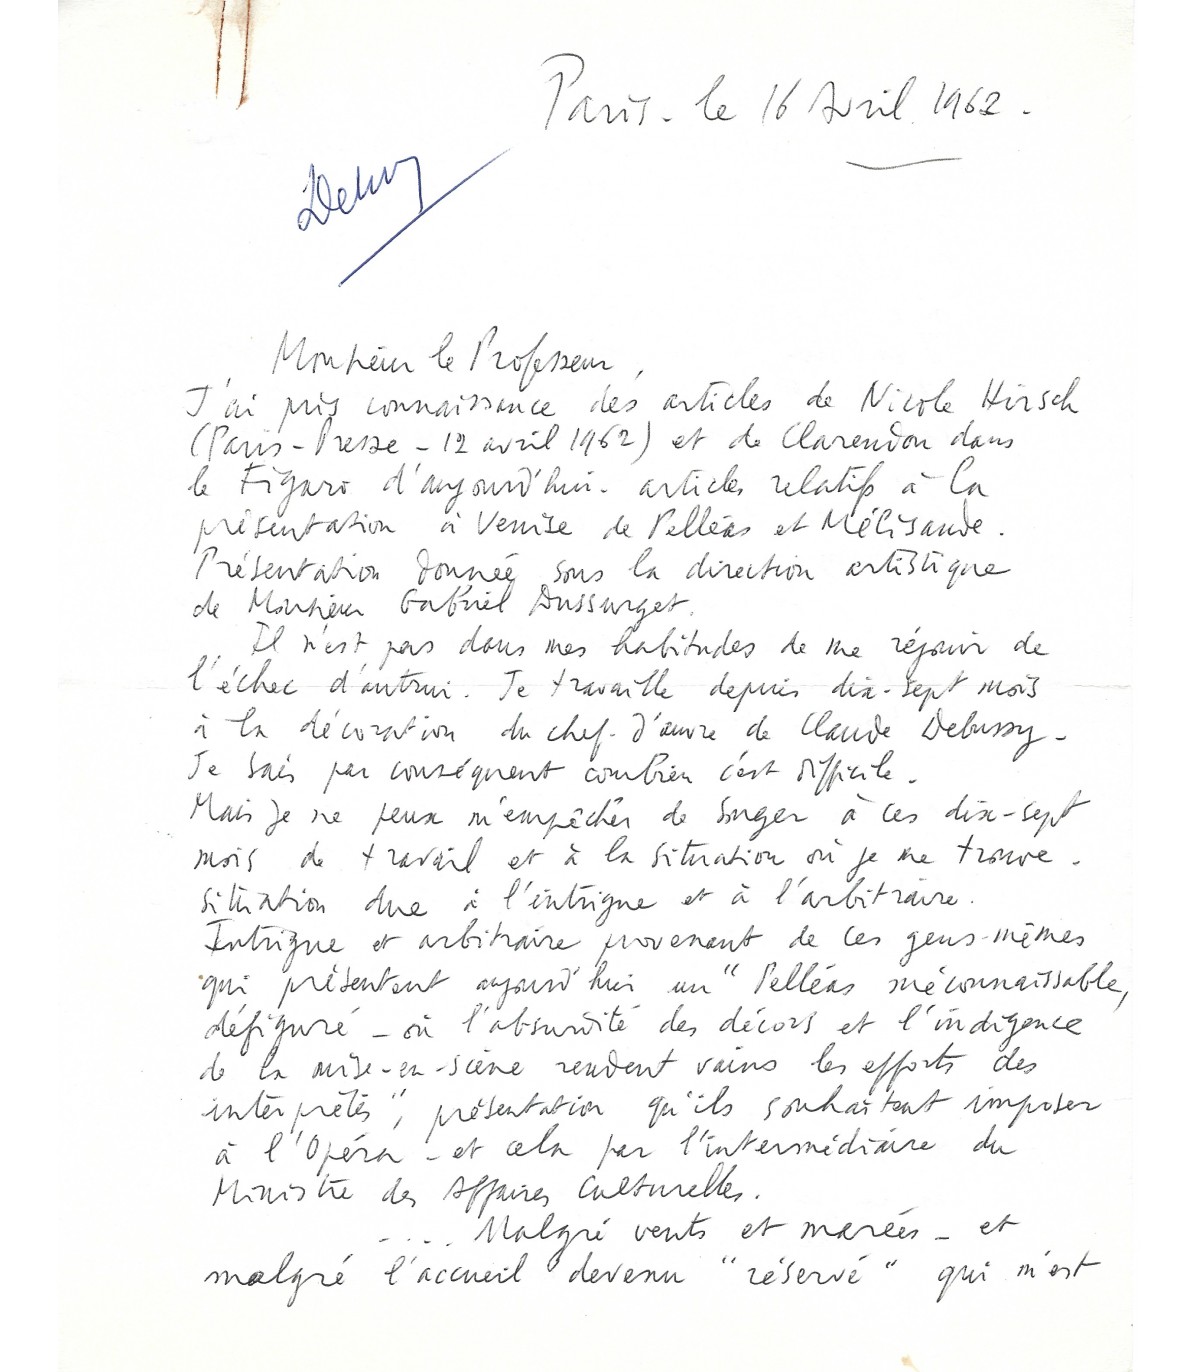 Paris - le 16 Avril 1962 -
Monsieur le Professeur,
J'ai pris connaissance des articles de Nicole Hirsch
(Paris-Presse - 12 avril 1962) et de Clarendon dans
le Figaro d'aujourd'hui - articles relatifs à la
présentation à Venise de Pelléas et Mélisande.
Présentation donnée sous la direction artistique
de Monsieur Gabriel Dussurget.
.. Il n'est pas dans mes habitudes de me réjouir de
l'échec d'autrui. Je travaille depuis dix-sept mois
à la décoration du chef-d'œuvre de Claude Debussy -
Je sais par conséquent combien c'est difficile -
Mais je ne peux m'empêcher de songer à ces dix-sept
mois de travail et à la situation où je me trouve -
situation due à l'intrigue et à l'arbitraire.
Intrigue et arbitraire provenant de ces gens-mêmes
qui présentent aujourd'hui un "Pelléas méconnaissable,
défiguré - où l'absurdité des décors et l'indigence
de la mise-en-scène rendent vains les efforts des
interprètes", présentation qu'ils souhaitent imposer
à l'Opéra - et cela par l'intermédiaire du
Ministre des Affaires Culturelles.
.... Malgré vents et marées - et
malgré l'accueil devenu "réservé" qui m'est